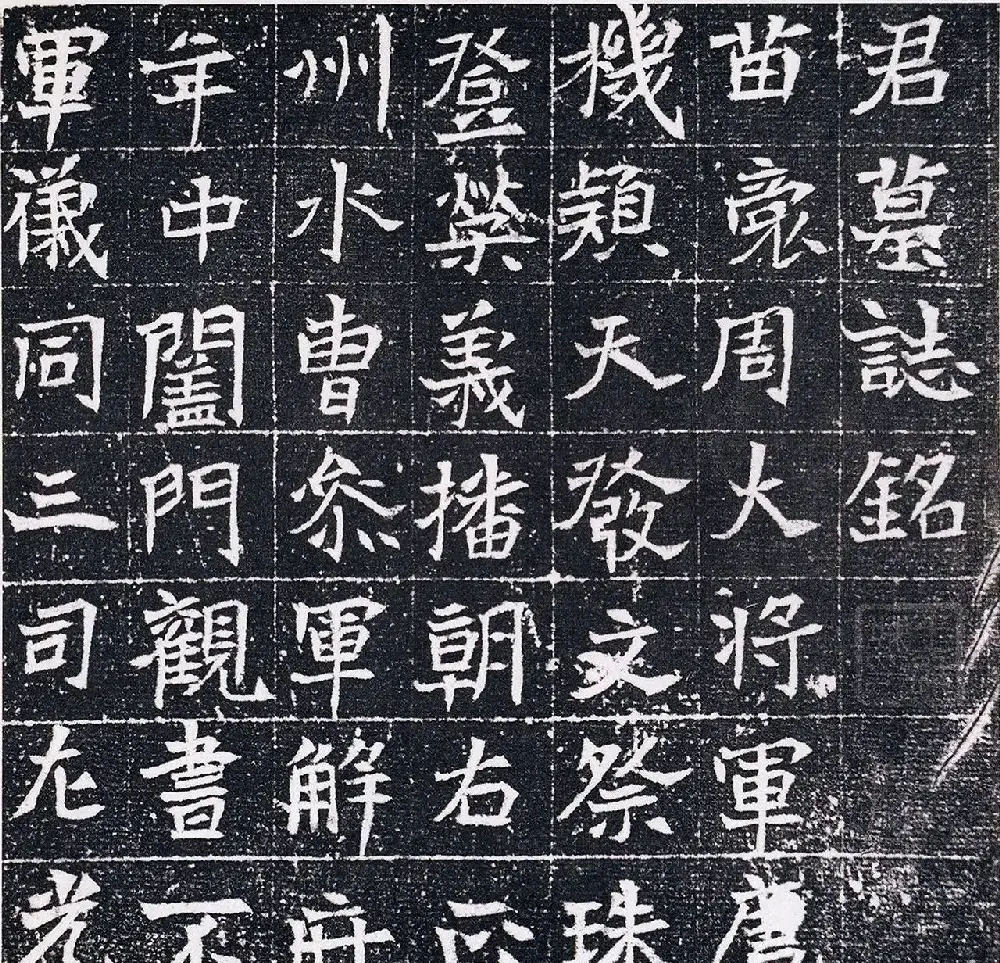 君墓誌銘
苗裔周大將軍唐
機穎天發文祭珠
登榮義播朝右
州水曹參軍解
年中闔門觀書不
軍儀同三司左光